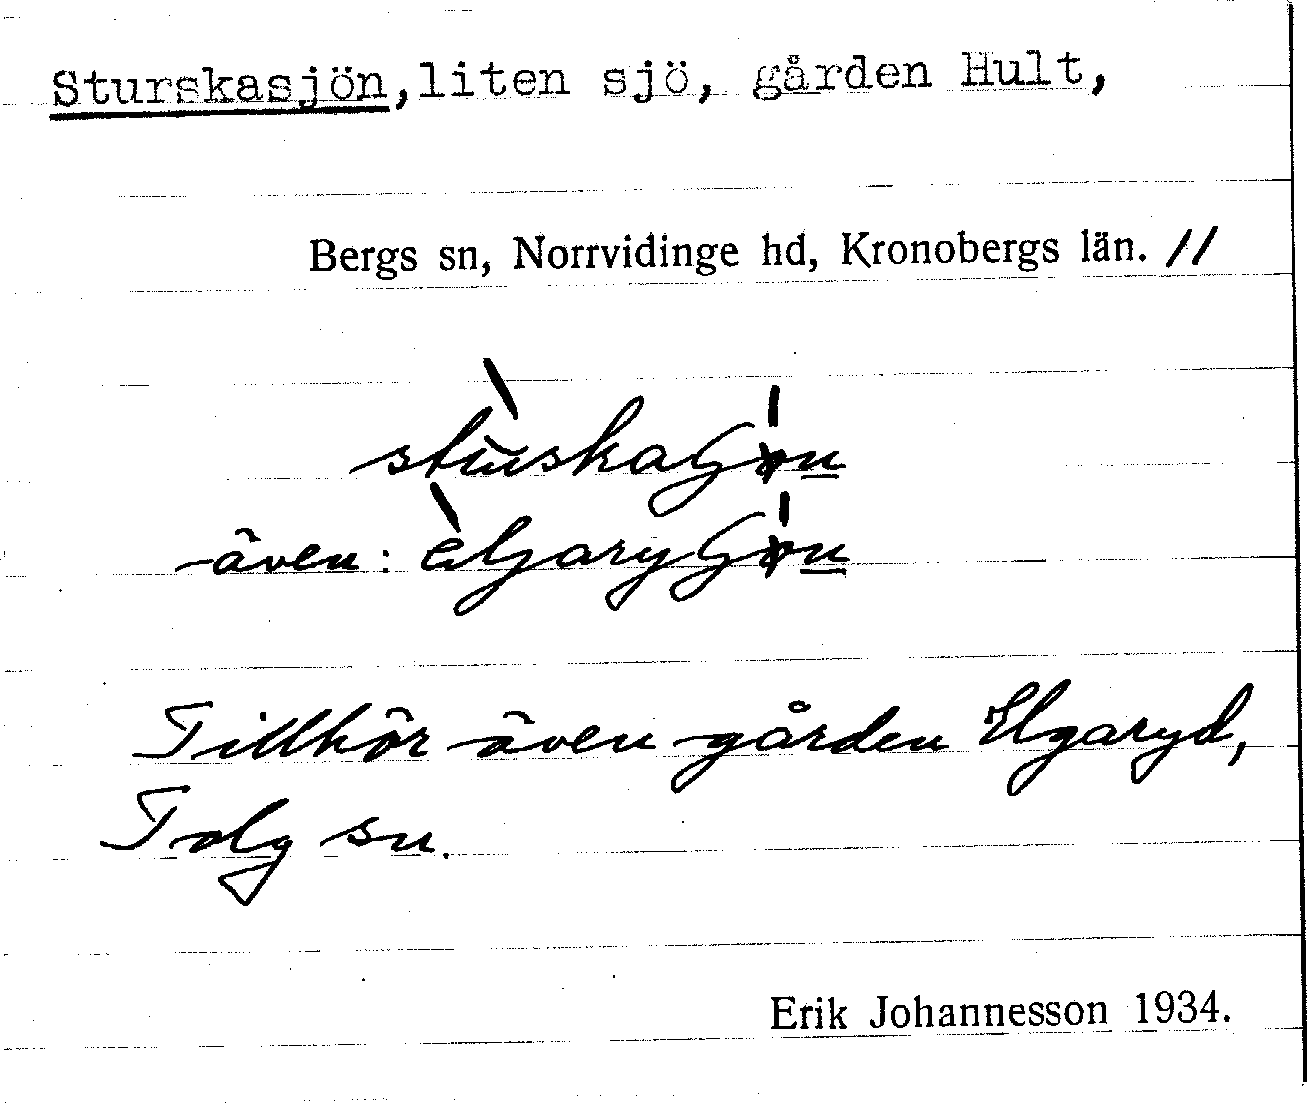 Sturskasjön, liten sjö, gården Hult,
Bergs sn, Norrvidinge hd, Kronobergs län. //
även:
Tillhör även gården Elgaryd,
Tolg sn.
Erik Johannesson 1934.